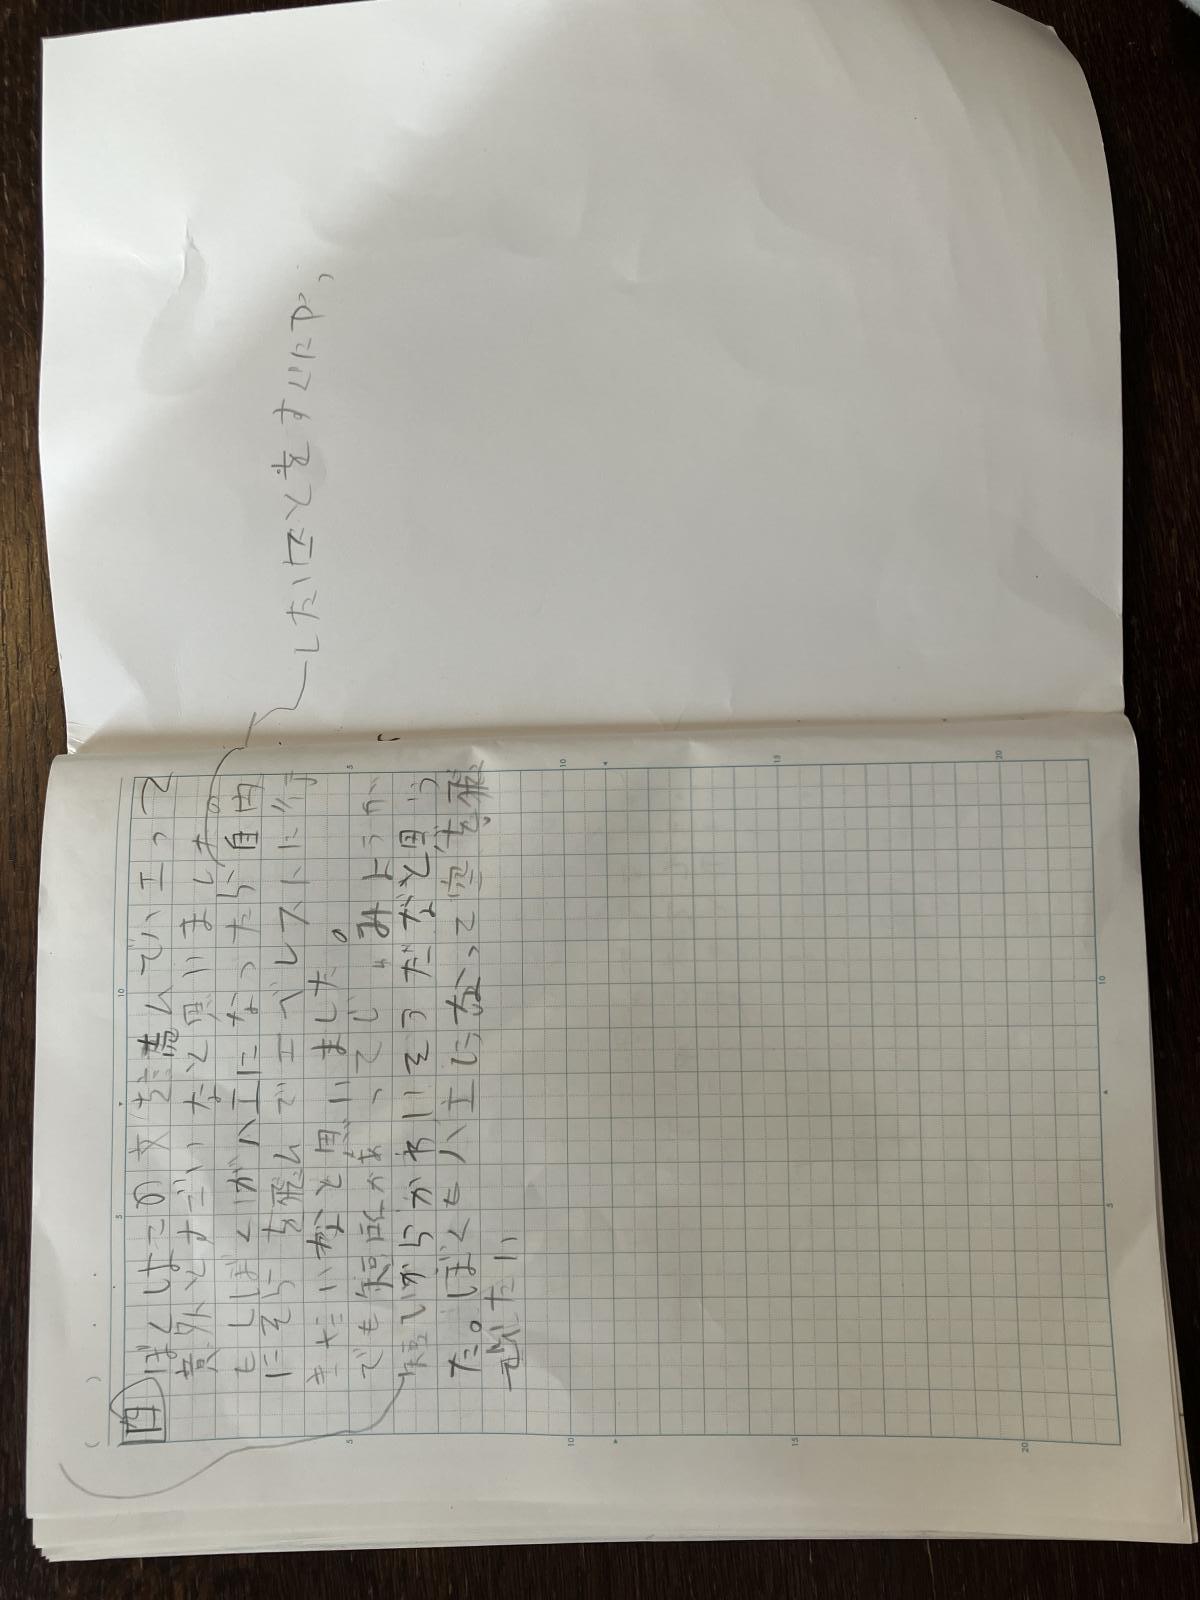 四
ぼくはこの文だ読んでハエって
意外とすごいなと思いました。
もしぼくがハエになったら自由
にそらを飛んでエベレストに行
きたいなと思いました。
でも短所があって じゅみょうが
短いからかわいそうだなと思っ
た。ぼくもハエになって空を飛
でみたい
したいことをすぐにや、